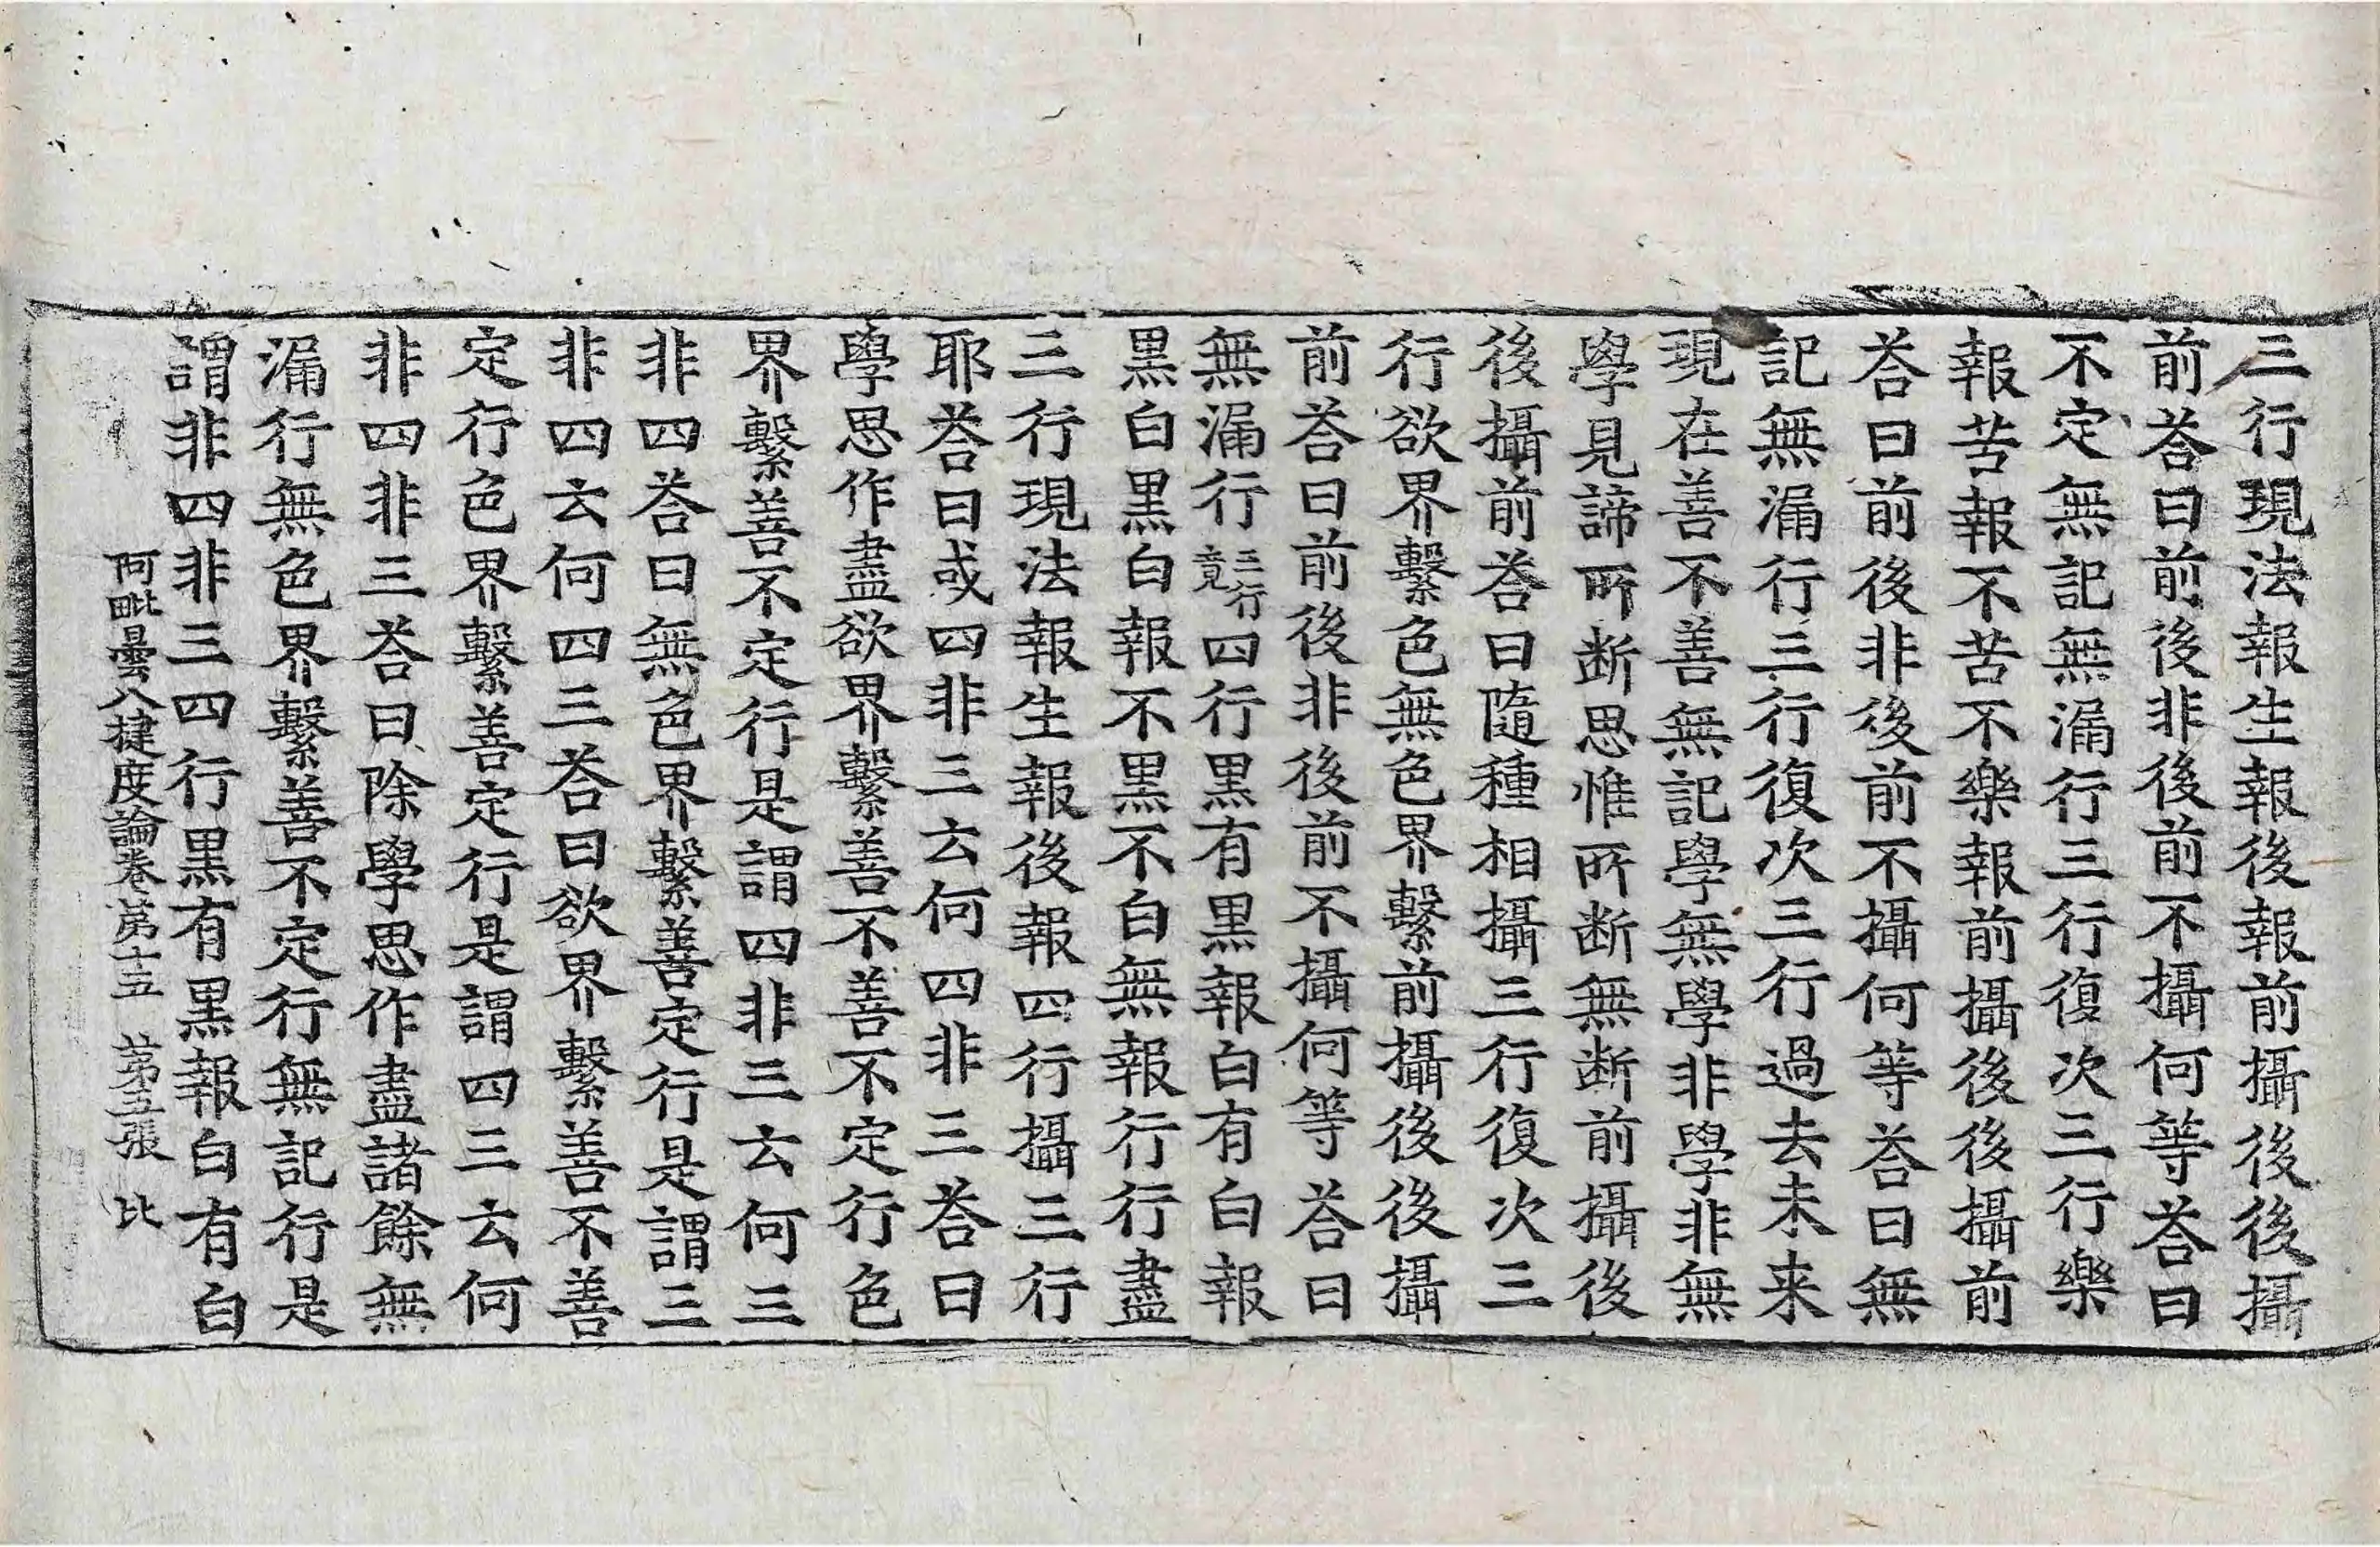 三行現法報生報後報前攝後後攝
前荅曰前後非後前不攝何等荅曰
不定無記無漏行三行復次三行樂
報苦報不苦不樂報前攝後後攝前
荅曰前後非後前不攝何等荅曰無
記無漏行三行復次三行過去未来
現在善不善無記學無學非學非無
學見諦所断思惟所断無断前攝後
後攝前荅曰隨種相攝三行復次三
行欲界繫色無色界繫前攝後後攝
前荅曰前後非後前不攝何等荅曰
無漏行三行竟四行黒有黒報白有白報
黒白黒白報不黒不白無報行行盡
三行現法報生報後報四行攝三行
耶荅曰或四非三云何四非三荅曰
學思作盡欲界繫善不善不定行色
界繫善不定行是謂四非三云何三
非四荅曰無色界繫善定行是謂三
非四云何四三荅曰欲界繫善不善
定行色界繫善定行是謂四三云何
非四非三荅曰除學思作盡諸餘無
漏行無色界繫善不定行無記行是
謂非四非三四行黒有黒報白有白
阿毗曇八揵度論卷苐十五 苐五張 比